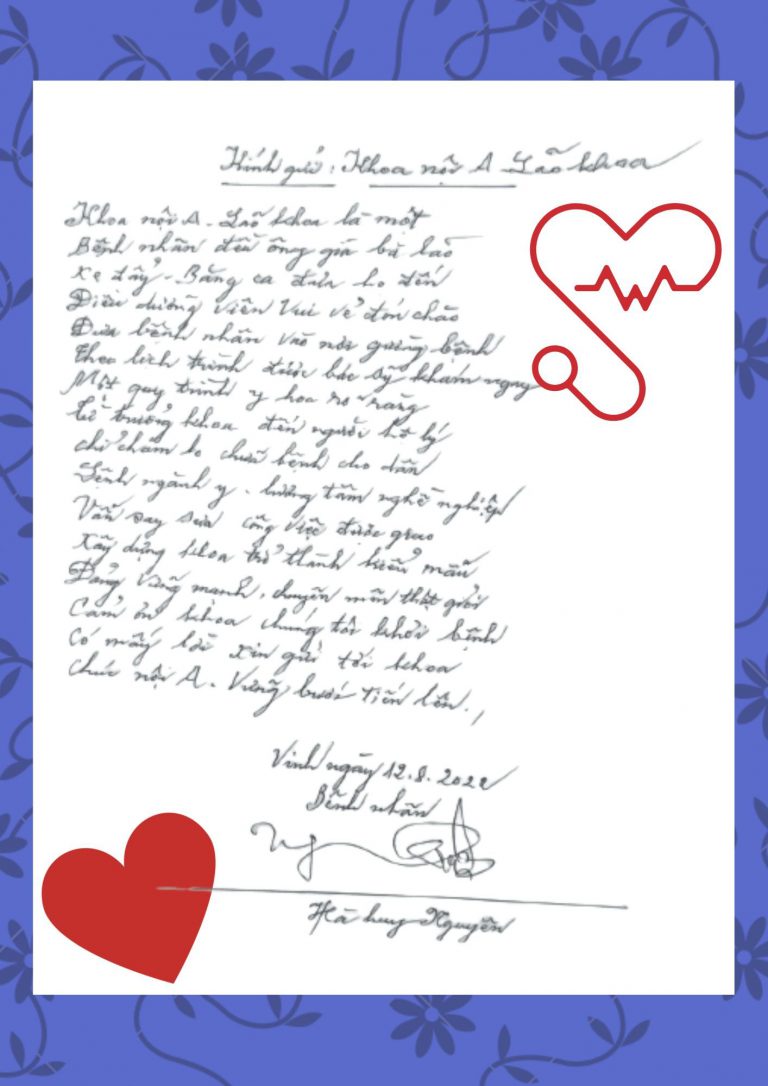 Kính gửi: Khoa nội A Lão khoa
Khoa nội A - Lão khoa là một
Bệnh nhân đều ông già bà lão
Xe đẩy - Băng ca đưa họ đến
Điều dưỡng viên vui vẻ đón chào
Đưa bệnh nhân vào nơi giường bệnh
Theo lịch trình được bác sỹ khám ngay
Một quy trình y hoa rõ ràng
từ trưởng khoa đến người hộ lý
chỉ chăm lo chữa bệnh cho dân
Lệnh ngành y - lương tâm nghề nghiệp
Vẫn say sưa công việc được giao
Xây dựng khoa trở thành kiểu mẫu
Đảng vững mạnh, chuyên môn thật giỏi
Cảm ơn khoa chúng tôi khỏi bệnh
Có mấy lời xin gửi tới khoa
chúc nội A. Vững bước tiến lên.
Vinh ngày 12.8.2022
Bệnh nhân
Hà huy Nguyên